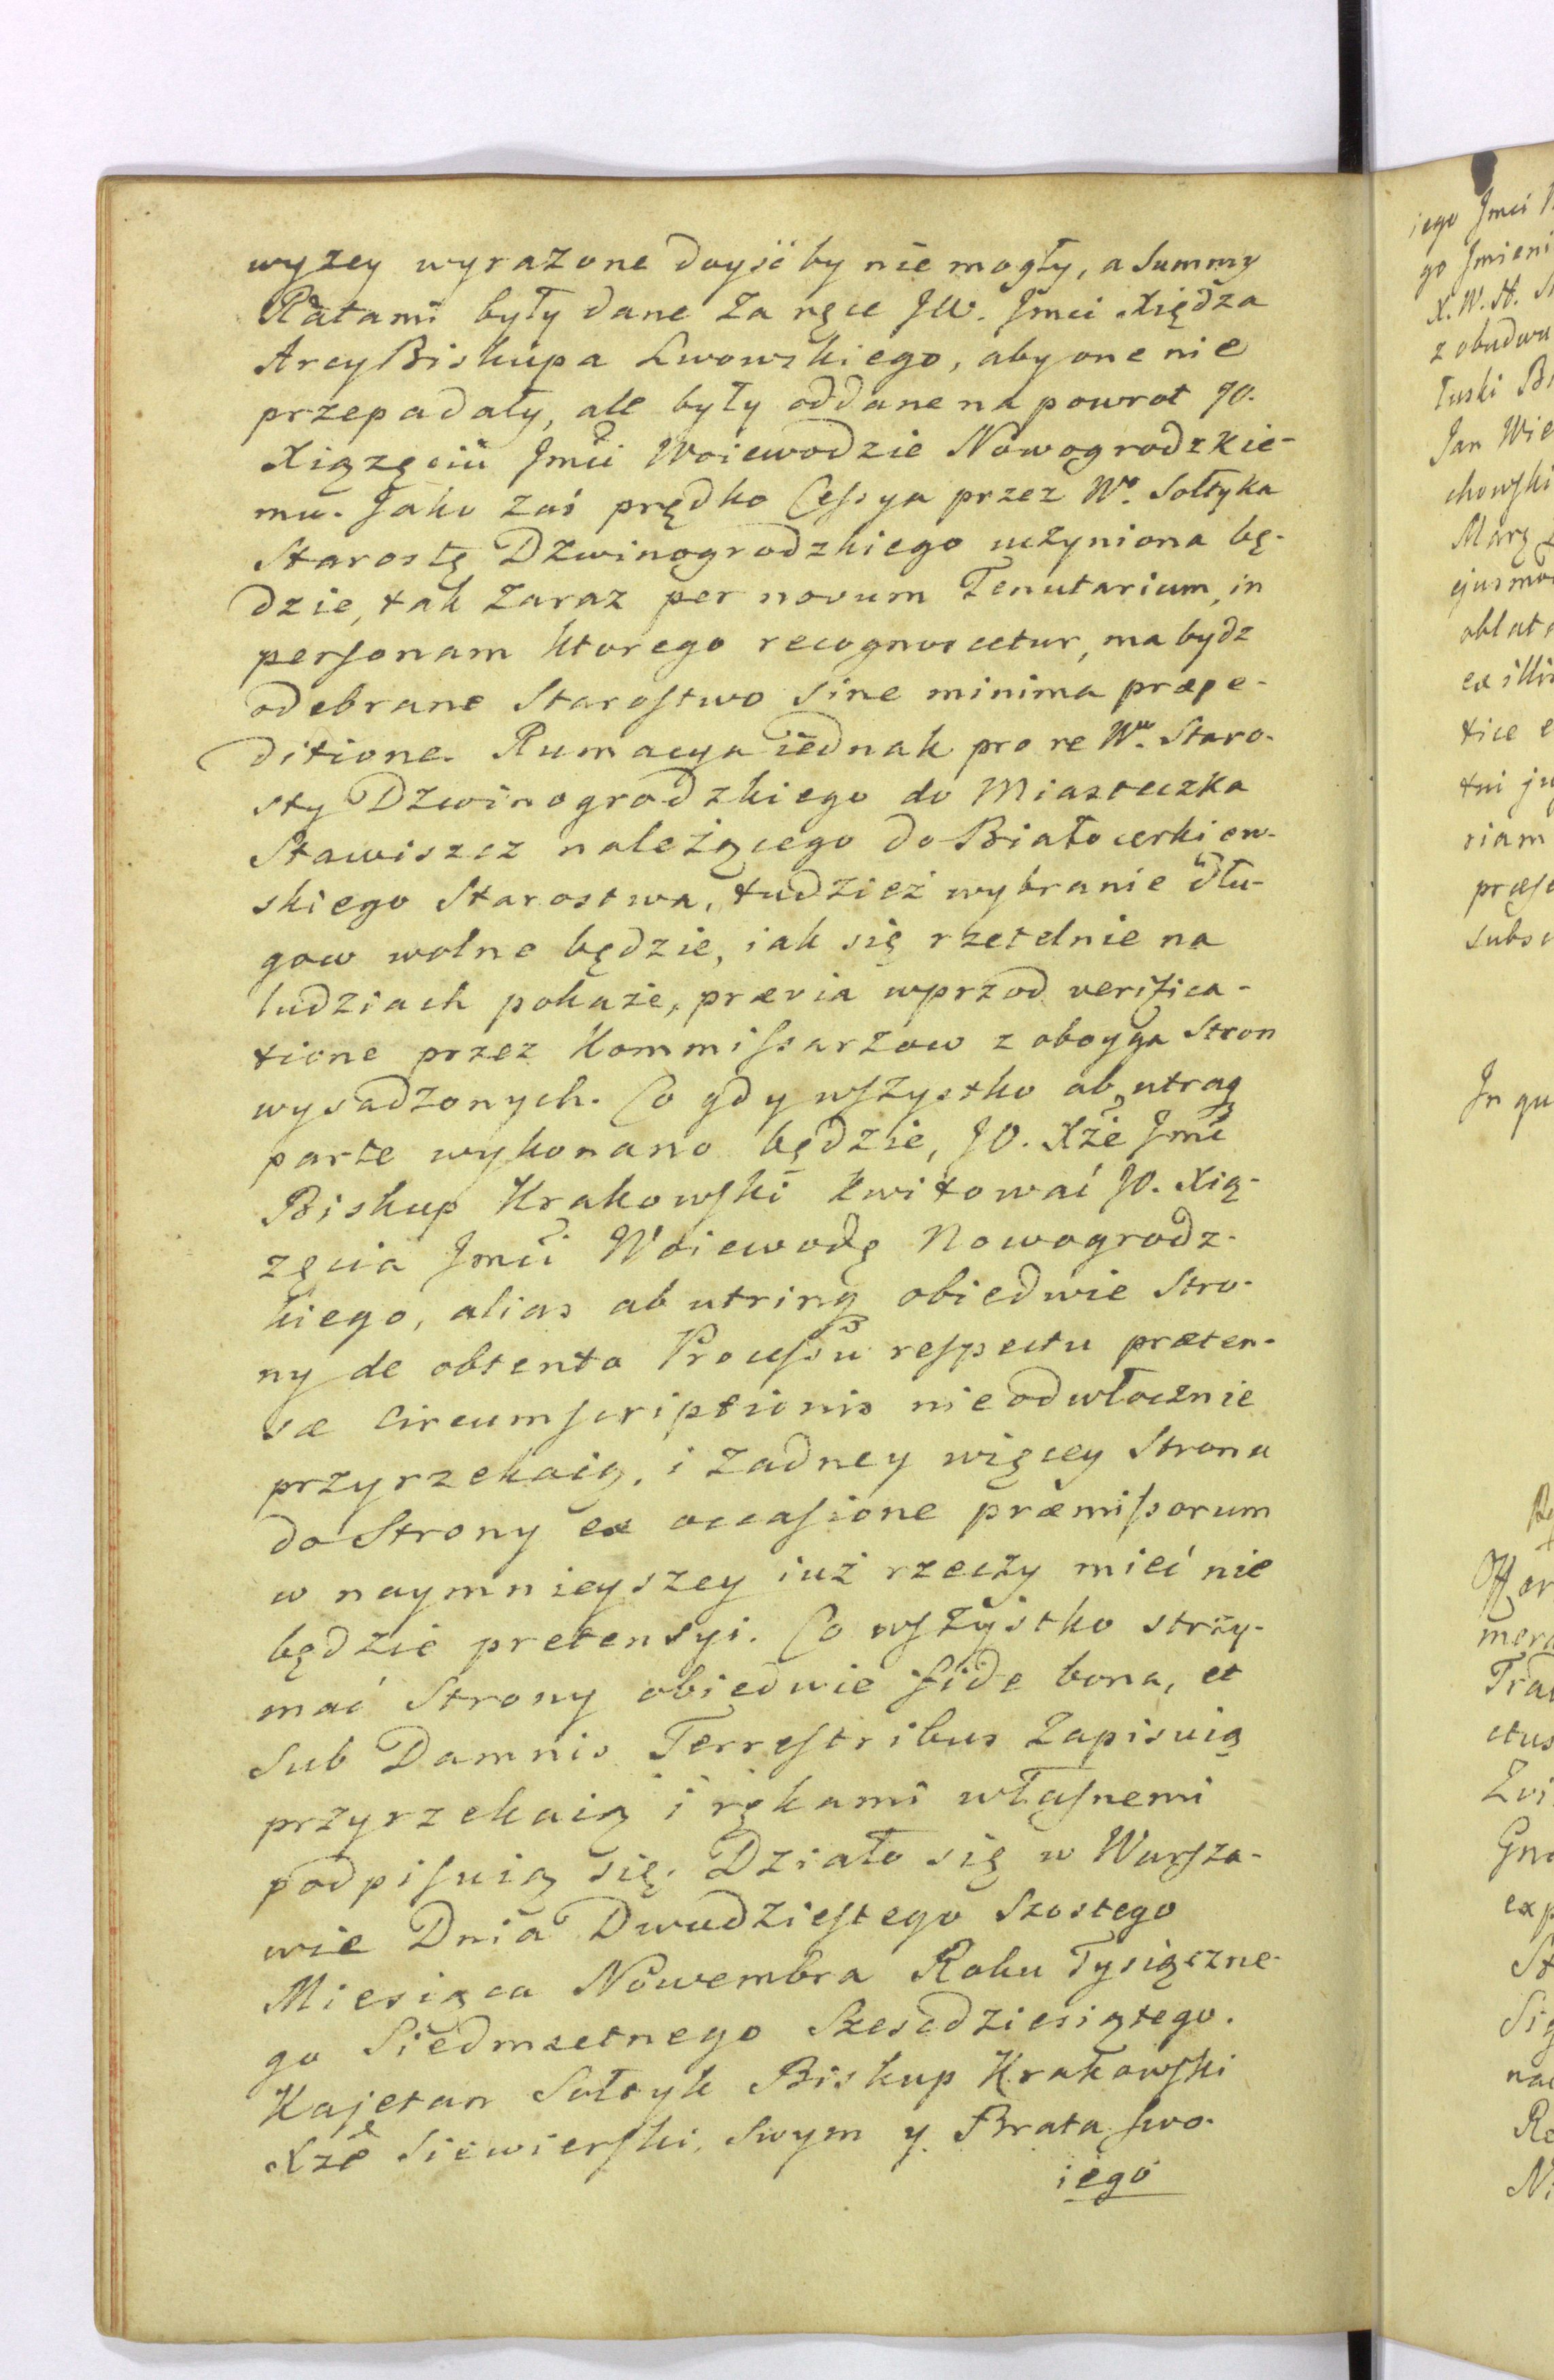 wyzey wyrazone doyść by nie mogły, a Summy
Ratami były dane Za ręce JW. Jmci Xiędza
ArcyBiskupa Lwowskiego, aby one nie
przepadały, ale były oddane na powrot JO.
Xiązęciu Jmci Woiewodzie Nowogrodzkie-
mu. Jako Zaś prędko Cessya przez Wo. Sołtyka
Starostę Dzwinogrodzkiego uczyniona bę-
dzie, tak Zaraz per novum Tenutarium, in
personam ktorego recognoscetur, ma bydz
odebrane Starostwo Sine minima præpe-
ditione. Rumacya iednak pro re Wo. Staro-
sty Dzwinogrodzkiego do Miasteczka
Stawiszcz należącego do Białocerkiew-
skiego Starostwa, tudzież wybranie dłu-
gow wolne będzie, iak się rzetelnie na
ludziach pokaże, prævia wprzod verifica-
tione przez Kommissarzow z oboyga Stron
wysadzonych. Co gdy wszystko ab utraq
parte wykonano będzie, JO. Xże Jmć
Biskup Krakowski kwitować JO. Xią-
zęcia Jmci Woiewodę Nowogrodz-
kiego, alias ab utrinq obiedwie Stro-
ny de obtento Processu respectu præten-
sæ Circumscriptionis nieodwłocznie
przyrzekaią, i Zadney więcey Strona
do Strony ex occasione præmissorum
w naymnieyszey iuż rzeczy mieć nie
będzie pretensyi. Co wszystko strzy-
mać Strony obiedwie fide bona, et
Sub Damnis Terrestribus Zapisuią
przyrzekaią i rękami własnemi
podpisuią się. Działo się w Warsza-
wie Dnia Dwudziestego Szostego
Miesiąca Nowembra Roku Tysiączne-
go Siedmsetnego Szescdziesiątego.
Kajetan Sołtyk Biskup Krakowski
Xże Siewierski, Swym y Brata swo-
iego
iego Jmci
go Jmieni
X. W. H.
z obudwu
łuski
Jan Wie
chowski
ejusmo
oblat
ex illi
tice e
riam
subs
In qu
ctus
Gn
St
Sig
Re